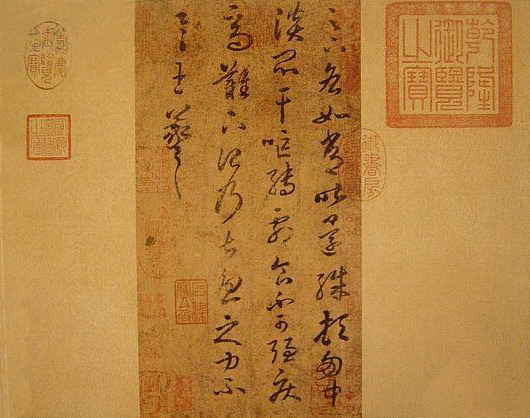 乾隆御覽之寶
足下各如常昨還殊頓匈中
淡悶干嘔轉劇食不可強疾
高難下治乃甚憂之力不
一一王羲之
御書房